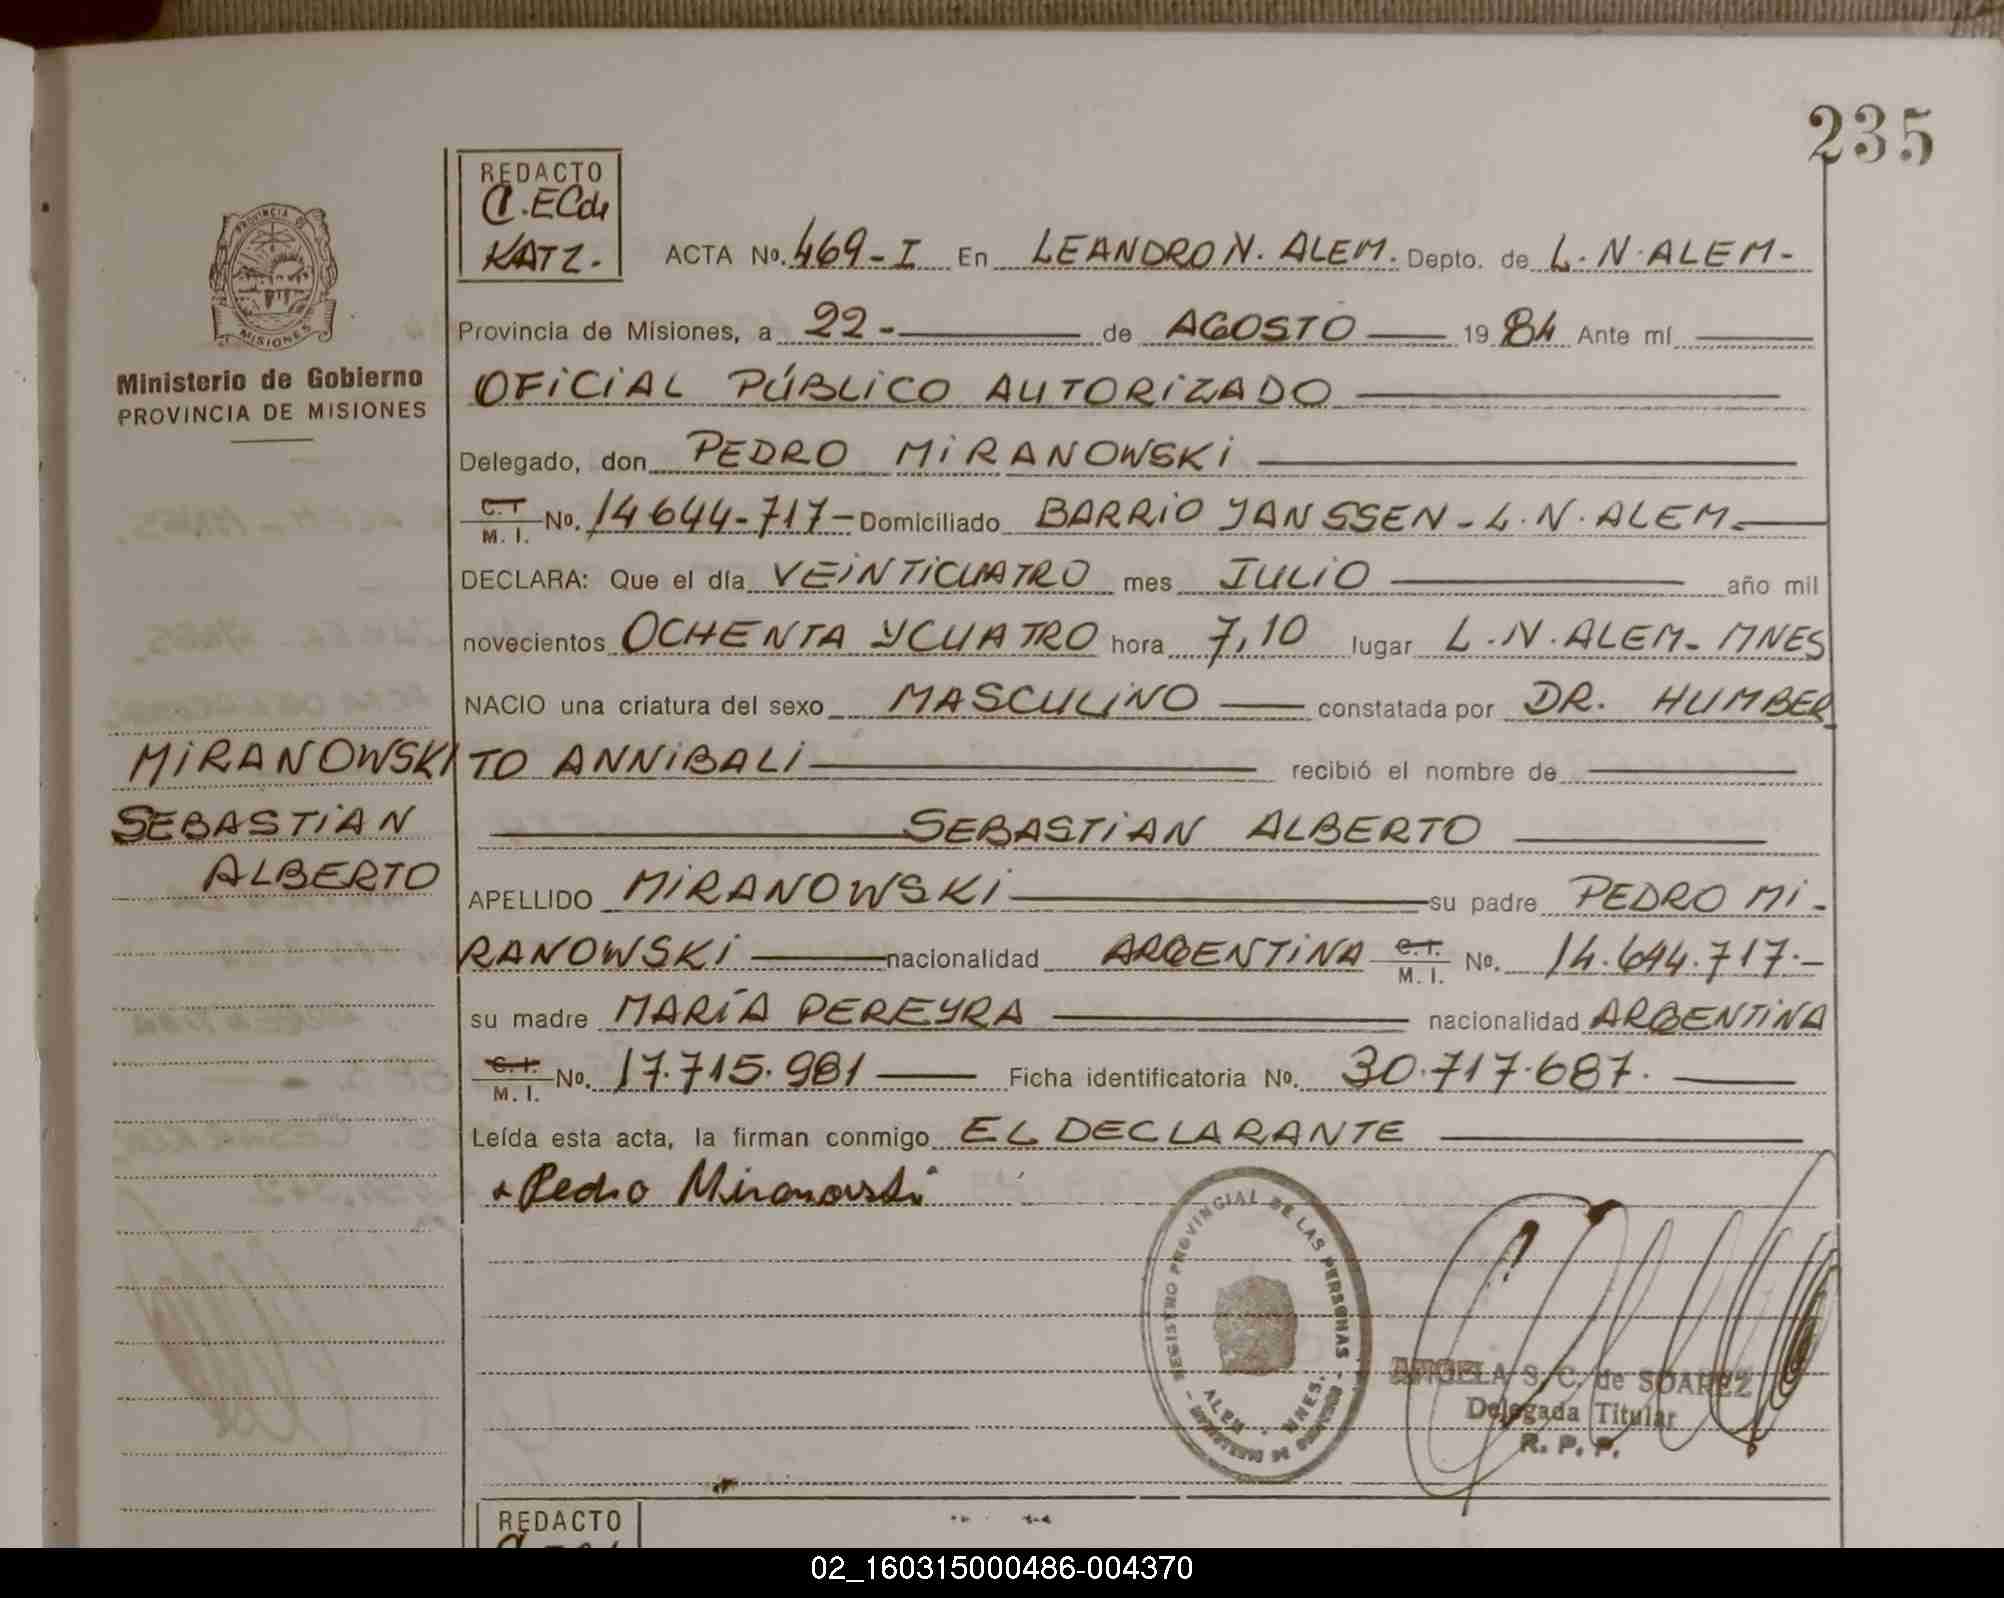 235
REDACTO
C.ECde
KATZ.-
ACTA Nº. 469-I En LEANDRO N. ALEM. Depto. de L.N.ALEM-
Provincia de Misiones, a 22- de AGOSTO 19 84 Ante mí
OFICIAL PÚBLICO AUTORIZADO
Delegado, don PEDRO MIRANOWSKI
C.I. M. I. No. 14644-717- Domiciliado BARRIO JANSSEN-L.N.ALEM-
DECLARA: Que el día VEINTICUATRO mes JULIO año mil
novecientos OCHENTA Y CUATRO hora 7,10 lugar L.N.ALEM- MNES
NACIO una criatura del sexo MASCULINO constatada por DR. HUMBER
TO ANNIBALI recibió el nombre de
SEBASTIAN ALBERTO
APELLIDO MIRANOWSKI su padre PEDRO MI-
RANOWSKI nacionalidad ARGENTINA C.I. M. I. Nº. 14.644.717.-
su madre MARÍA PEREYRA nacionalidad ARGENTINA
C.I. M. I. No. 17.715.981 Ficha identificatoria No. 30.717.687.
Leída esta acta, la firman conmigo EL DECLARANTE
Pedro Miranowski
PROVINCIA DE
MISIONES
Ministerio de Gobierno
PROVINCIA DE MISIONES
MIRANOWSKI
SEBASTIAN
ALBERTO
REGISTRO PROVINCIAL DE LAS PERSONAS
ALEM - MNES.
ANGELA S. C. de SOAREZ
Delegada Titular
R. P. P.
REDACTO
02_160315000486-004370